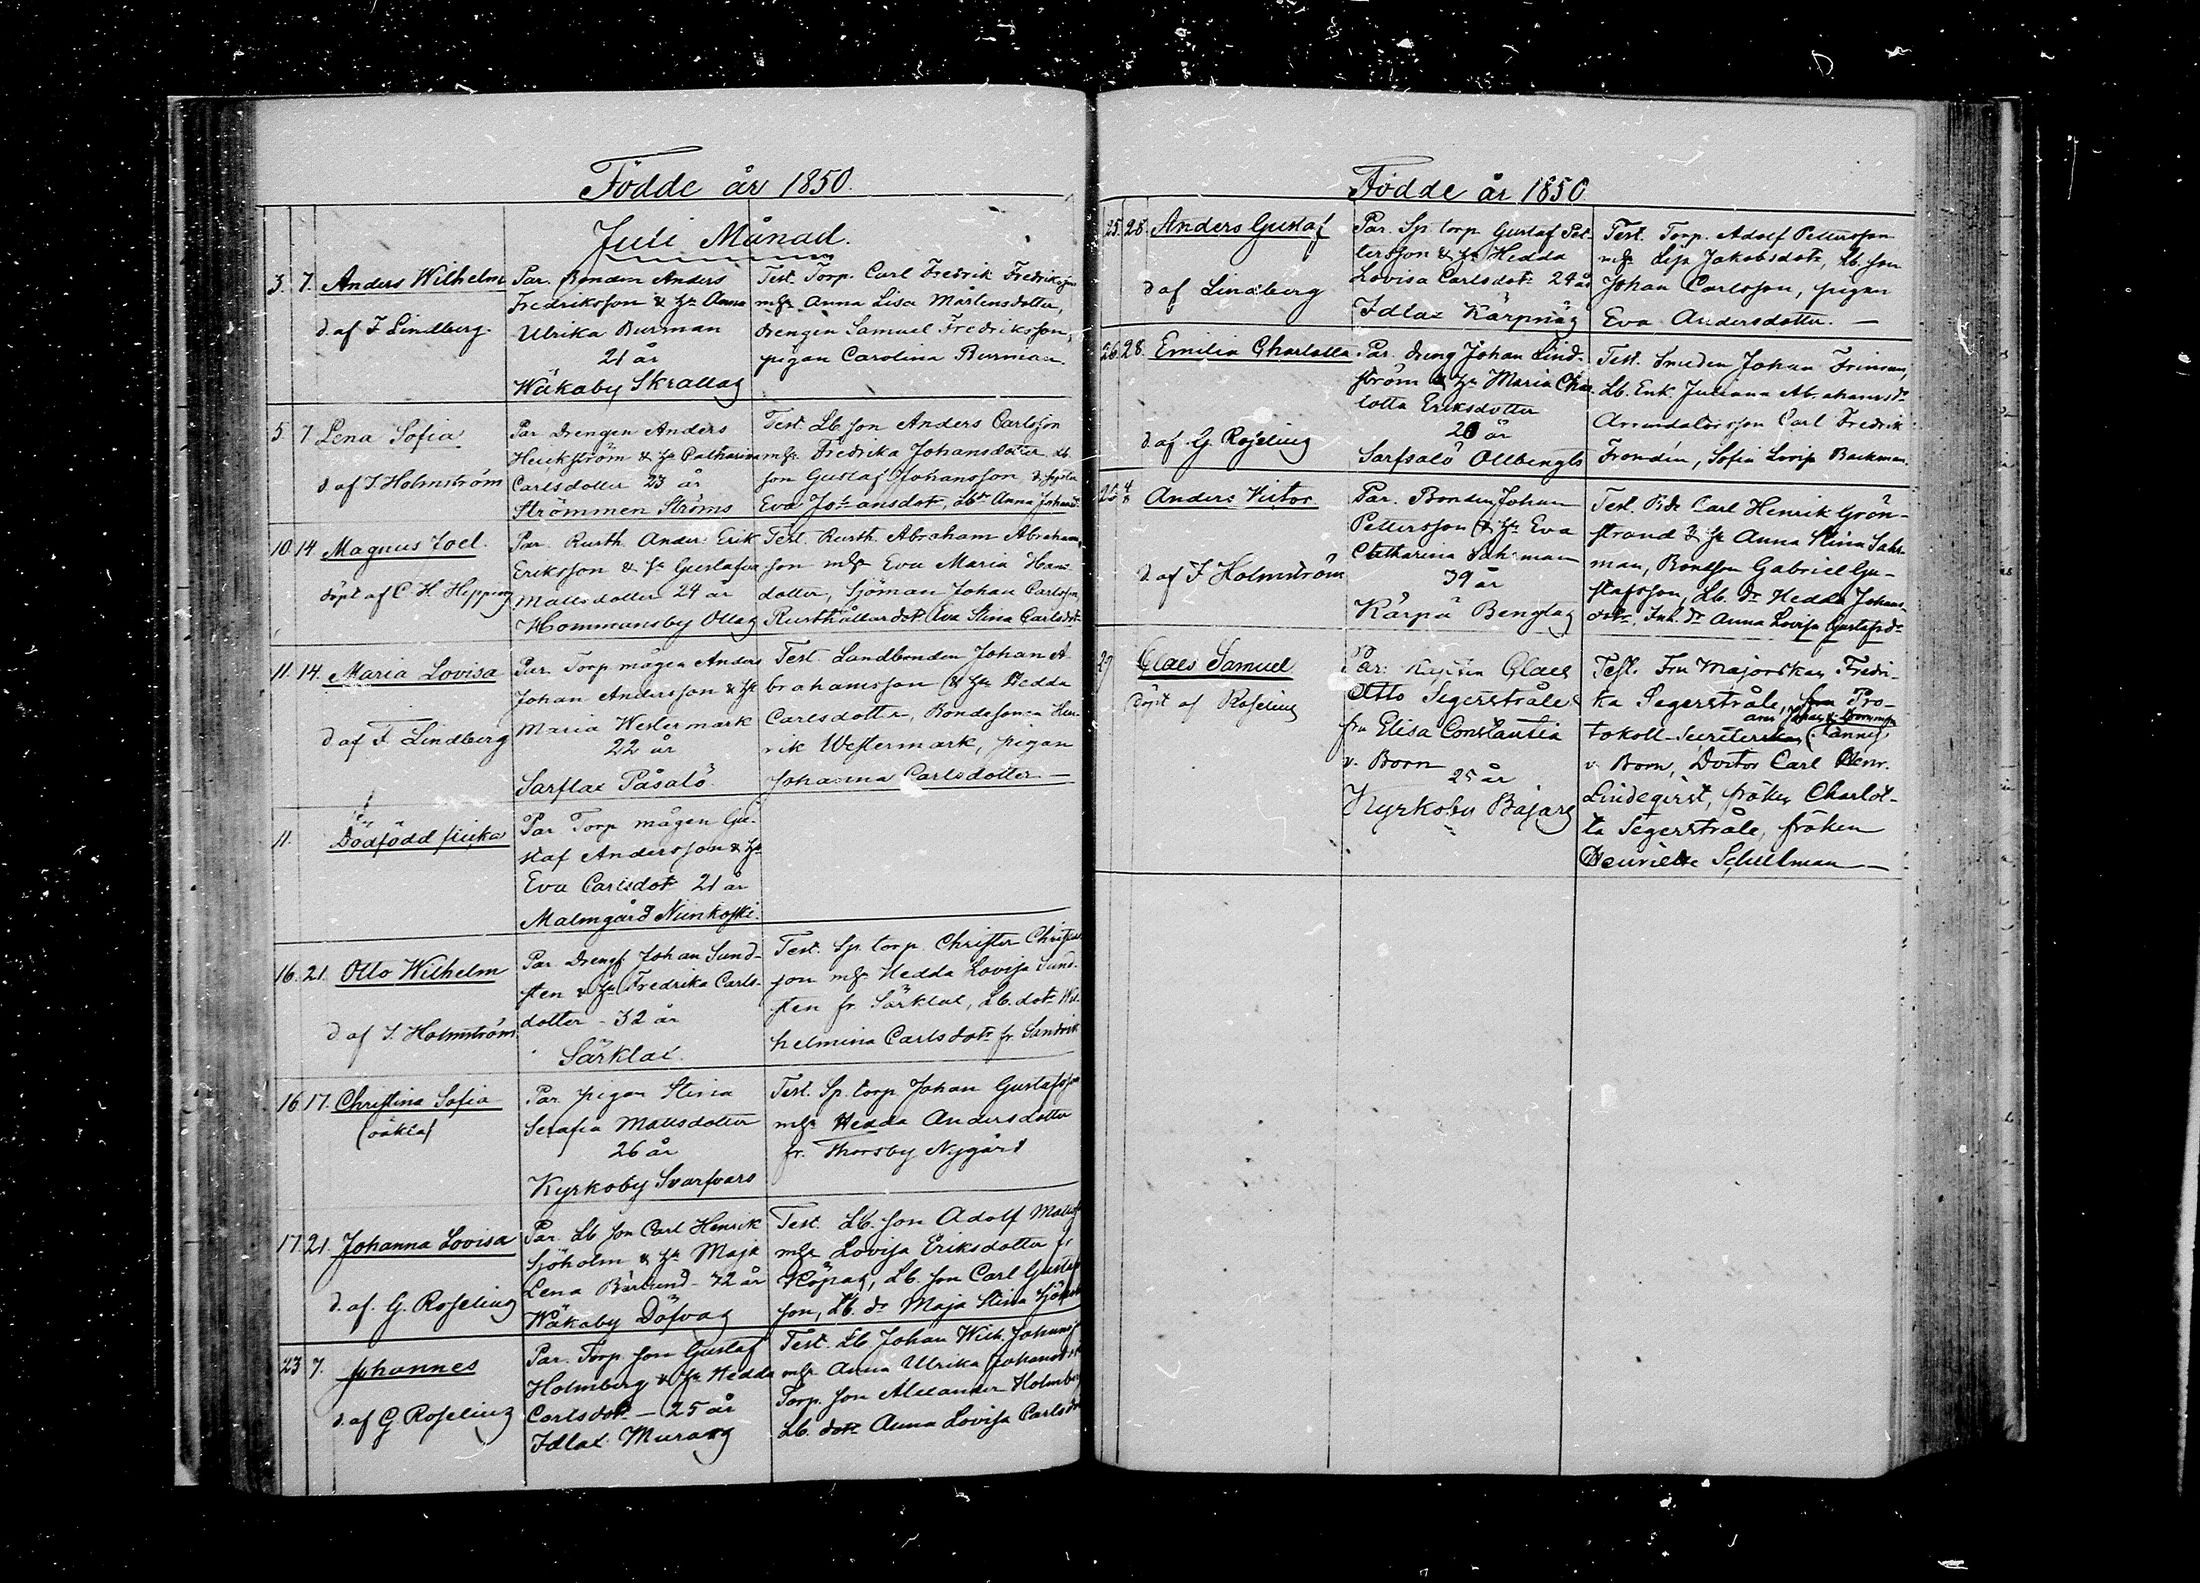 Födde år 1850.
Juli Månad.
3. 7. Anders Wilhelm
d af F Lindberg.
Par. Bonden Anders
Fredriksson & hr Anna
Ulrika Burman
21 år
Wäkaby Skrallas
Test. Torp. Carl Fredrik Fredriksson
mhr Anna Lisa Mårtensdotter,
drengen Samuel Fredriksson,
pigan Carolina Burman
5 7 Lena Sofia
d af J. Holmström
Par Drengen Anders
Henkström & hr Catharina
Carlsdotter 23 år
Strömmen Ströms
Test. Lb son Anders Carlsson
mhr Fredrika Johansdotter Lb
son Gustaf Johansson &
Eva Johansdotr, Lb dr Anna Johansd
10 14 Magnus Joel.
döpt af C. H. Hipping
Par. Rusth. Anders Erik
Eriksson & hr Gustafva
Mattsdotter 24 år
Hommansby Ollas
Test. Rusth. Abraham Abraham
son mhr Eva Maria Hans
dotter, Sjöman Johan Carlsson,
Rusthållardotr Eva Stina Carlsdotr
11. 14. Maria Lovisa
d af F. Lindberg
Par. Torp mågen Anders
Johan Andersson & hr
Maria Westermark
22 år
Sarflax Påsalö
Test. Landbonden Johan A
brahamsson & hr Hedda
Carlsdotter, Bondesonen Hen
rik Westermark, pigan
Johanna Carlsdotter —
11. Dödfödd flicka
Par Torp mågen Gu-
staf Andersson & hr
Eva Carlsdotr 21 år
Malmgård Niinkoski.
16. 21. Otto Wilhelm
d af J. Holmström.
Par Drengs Johan Sund-
sten & hr Fredrika Carls-
dotter - 32 år
Särklax.
Test. Sp. torp. Christer Christers
son mhr Hedda Lovisa Sund-
sten fr. Särklax, Lb. dotr Wil-
helmina Carlsdotr fr Sandvik
16 17. Christina Sofia
(oäkta)
Par. pigan Stina
Serafia Mattsdotter
26 år
Kyrkoby Svarfvars
Test. Sp. torp Johan Gustafsson
mhr Hedda Andersdotter
fr. Thorsby Nygård
17. 21. Johanna Lovisa
d. af. G. Roseling
Par. Lb son Carl Henrik
Sjöholm & hr Maja
Lena Bärlund - 42 år
Wäkaby Döfvas
Test. Lb. son Adolf Matts
mhr Lovisa Eriksdotter fr
Köpas, Lb. son Carl Gustaf
son, Lb. dr Maja Stina
23 7. Johannes
d. af G. Roseling
Par. Torp. son Gustaf
Holmberg & hr Hedda
Carlsdotr — 25 år
Idlax Muras
Test. Lb Johan Wilh. Johanss
mhr Anna Ulrika Johansdotr
Torp. son Alexander Holmberg
Lb. dotr Anna Lovisa Carlsdr
Födde år 1850
25. 28. Anders Gustaf
d af Lindberg
Par. Sp. torp. Gustaf Pet-
tersson & hr Hedda
Lovisa Carlsdotr 24 år
Idlax Kärpnäs
Test. Torp. Adolf Pettersson
mhr Lisa Jakobsdotr, Lb. son
Johan Carlsson, pigan
Eva Andersdotter. —
26. 28. Emilia Charlotta
d. af G. Roseling
Par. dreng Johan Lind-
ström & hr Maria Char-
lotta Eriksdotter
20 år
Sarfsalö Ollbengts
Test. Smeden Johan Friman,
Lb. Enk. Juliana Abrahamsdr
Arrendatorsson Carl Fredrik
Frondén, Sofia Lovisa Backman.
25 4/8 Anders Victor
d af J Holmström
Par. Bonden Johan
Pettersson & hr Eva
Catharina Sahrman
39 år
Kärpä Bengtas
Test. Bde Carl Henrik Grön-
strand & hr Anna Stina Sahr-
man, Bondson Gabriel Gu-
stafsson, Lb. dr Hedda Johans-
dotr, Inh. dr Anna Lovisa Gustafsdr
29 Claes Samuel
Döpt af Roseling
Par. Kapten Claes
Otto Segerstråle &
fru Elisa Constantia
v. Born
25 år
Kyrkoby Bajars
Test. Fru Majorskan Fredri-
ka Segerstråle, fru Pro-
tokoll-Secreterskan Fanny
v. Born, Doctor Carl Henr.
Lindeqvist, fröken Charlot-
ta Segerstråle, fröken
Henriette Schulman —